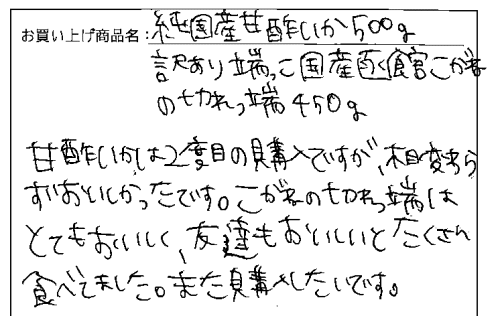 お買い上げ商品名：純国産甘酢いか500g
訳あり端っこ国産豚角煮こがね
の切れっ端450g
甘酢いかは2度目の購入ですが、相変わら
ずおいしかったです。こがねの切れっ端は
とてもおいしく、友達もおいしいとたくさん
食べてました。また購入したいです。